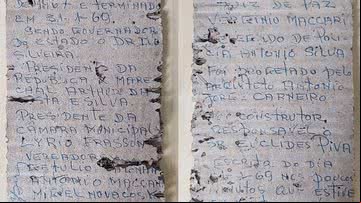 E TERMINADO
EM 31.1.69.
SENDO GOVERNADOR
DO ESTADO O DR
SILVEIRA.
PRESIDENTE DA
REPUBLICA MARE
CHAL ARTHUR DA
COSTA E SILVA.
PRESIDENTE DA
CAMARA MUNICIPAL
LYRIO FRASSON
VEREADOR
ANTONIO MACCARI
MIGUEL NOVACOSKI
JUIZ DE PAZ
VIRGINIO MACCARI
DELEGADO DE POLI
CIA ANTONIO SILVA
FOI PROJETADO PELO
ARQUITETO ANTONIO
JOSE CARNEIRO
CONSTRUTOR
RESPONSAVEL O
SR EUCLIDES PIVA
ESCRITA DO DIA
1 69 NOS POUCOS
MINUTOS QUE ESTIVE